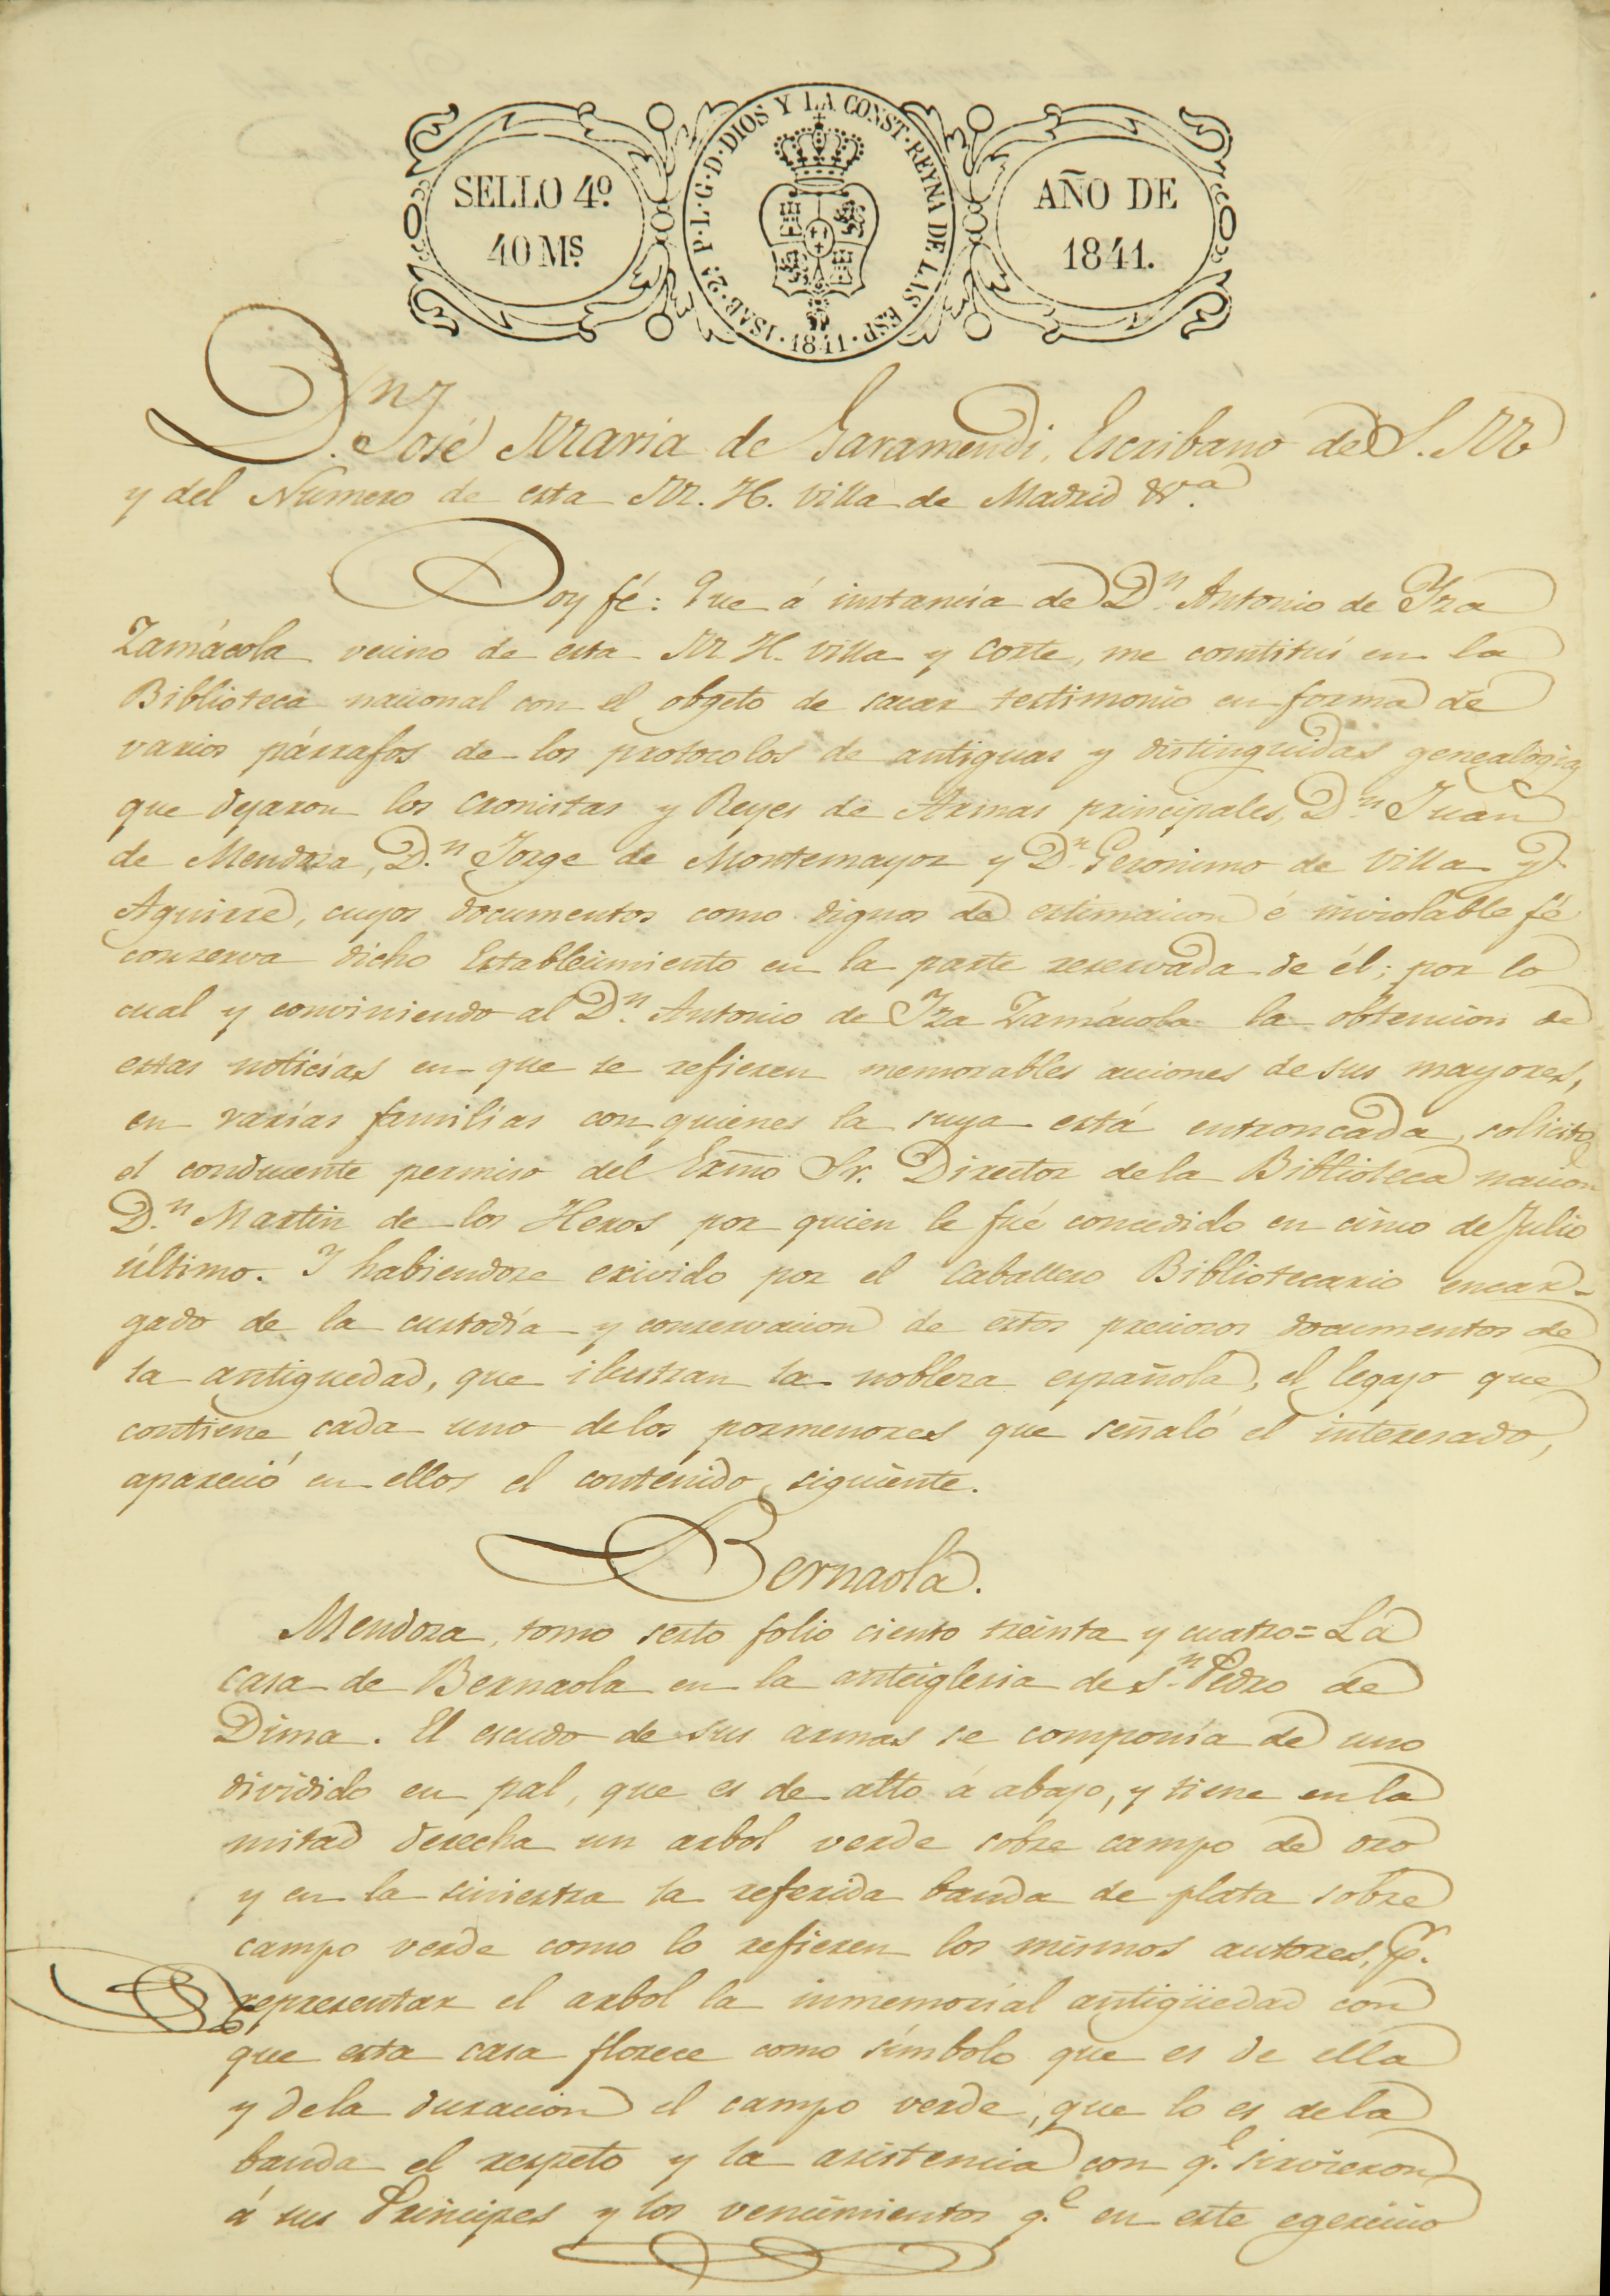 SELLO 4º
40 Mˢ.
ISAB·2ª P·L·G·D·DIOS Y LA CONST·REYNA DE LAS ESP·
·1841·
AÑO DE
1841.
Dⁿ. José Maria de Garamendi, Escribano de S. M.
y del Numero de esta M. H. Villa de Madrid &ª.
Doy fé: Que á instancia de Dⁿ. Antonio de Yza
Zamácola vecino de esta M. H. Villa y Corte, me constitui en la
Biblioteca nacional con el obgeto de sacar testimonio en forma de
varios párrafos de los protocolos de antiguas y distinguidas genealogias
que dejaron los Cronistas y Reyes de Armas principales, Dⁿ. Juan
de Mendoza, D.ⁿ Jorge de Montemayor y Dⁿ. Geronimo de Villa y
Aguirre, cuyos documentos como dignos de estimacion é inviolable fé
conserva dicho Establecimiento en la parte reservada de él; por lo
cual y conviniendo al Dⁿ. Antonio de Yza Zamácola la obtencion de
estas noticias en que se refieren memorables acciones de sus mayores,
en varias familias con quienes la suya está entroncada, solicitó
el conducente permiso del Exmo Sr. Director de la Biblioteca nacion
D.ⁿ Martin de los Heros por quien le fué concedido en cinco de Julio
último. Y habiendose exivido por el Caballero Bibliotecario encar-
gado de la custodia y conservacion de estos preciosos documentos de
la antiguedad, que ilustran la nobleza española, el legajo que
contiene cada uno de los pormenores que señaló el interesado,
apareció en ellos el contenido siguiente.
Bernaola.
Mendoza, tomo sesto folio ciento treinta y cuatro = La
casa de Bernaola en la anteiglesia de Sⁿ. Pedro de
Dima. El escudo de sus armas se componia de uno
dividido en pal, que es de alto á abajo, y tiene en la
mitad derecha un arbol verde sobre campo de oro
y en la siniestra la referida banda de plata sobre
campo verde como lo refieren los mismos autores, pʳ.
representar el arbol la inmemorial antigüedad con
que esta casa florece como símbolo que es de ella
y de la duracion el campo verde, que lo es de la
banda el respeto y la asistencia con q.ᵉ sirvieron
á sus Principes y los vencimientos q.ᵉ en este egercicio